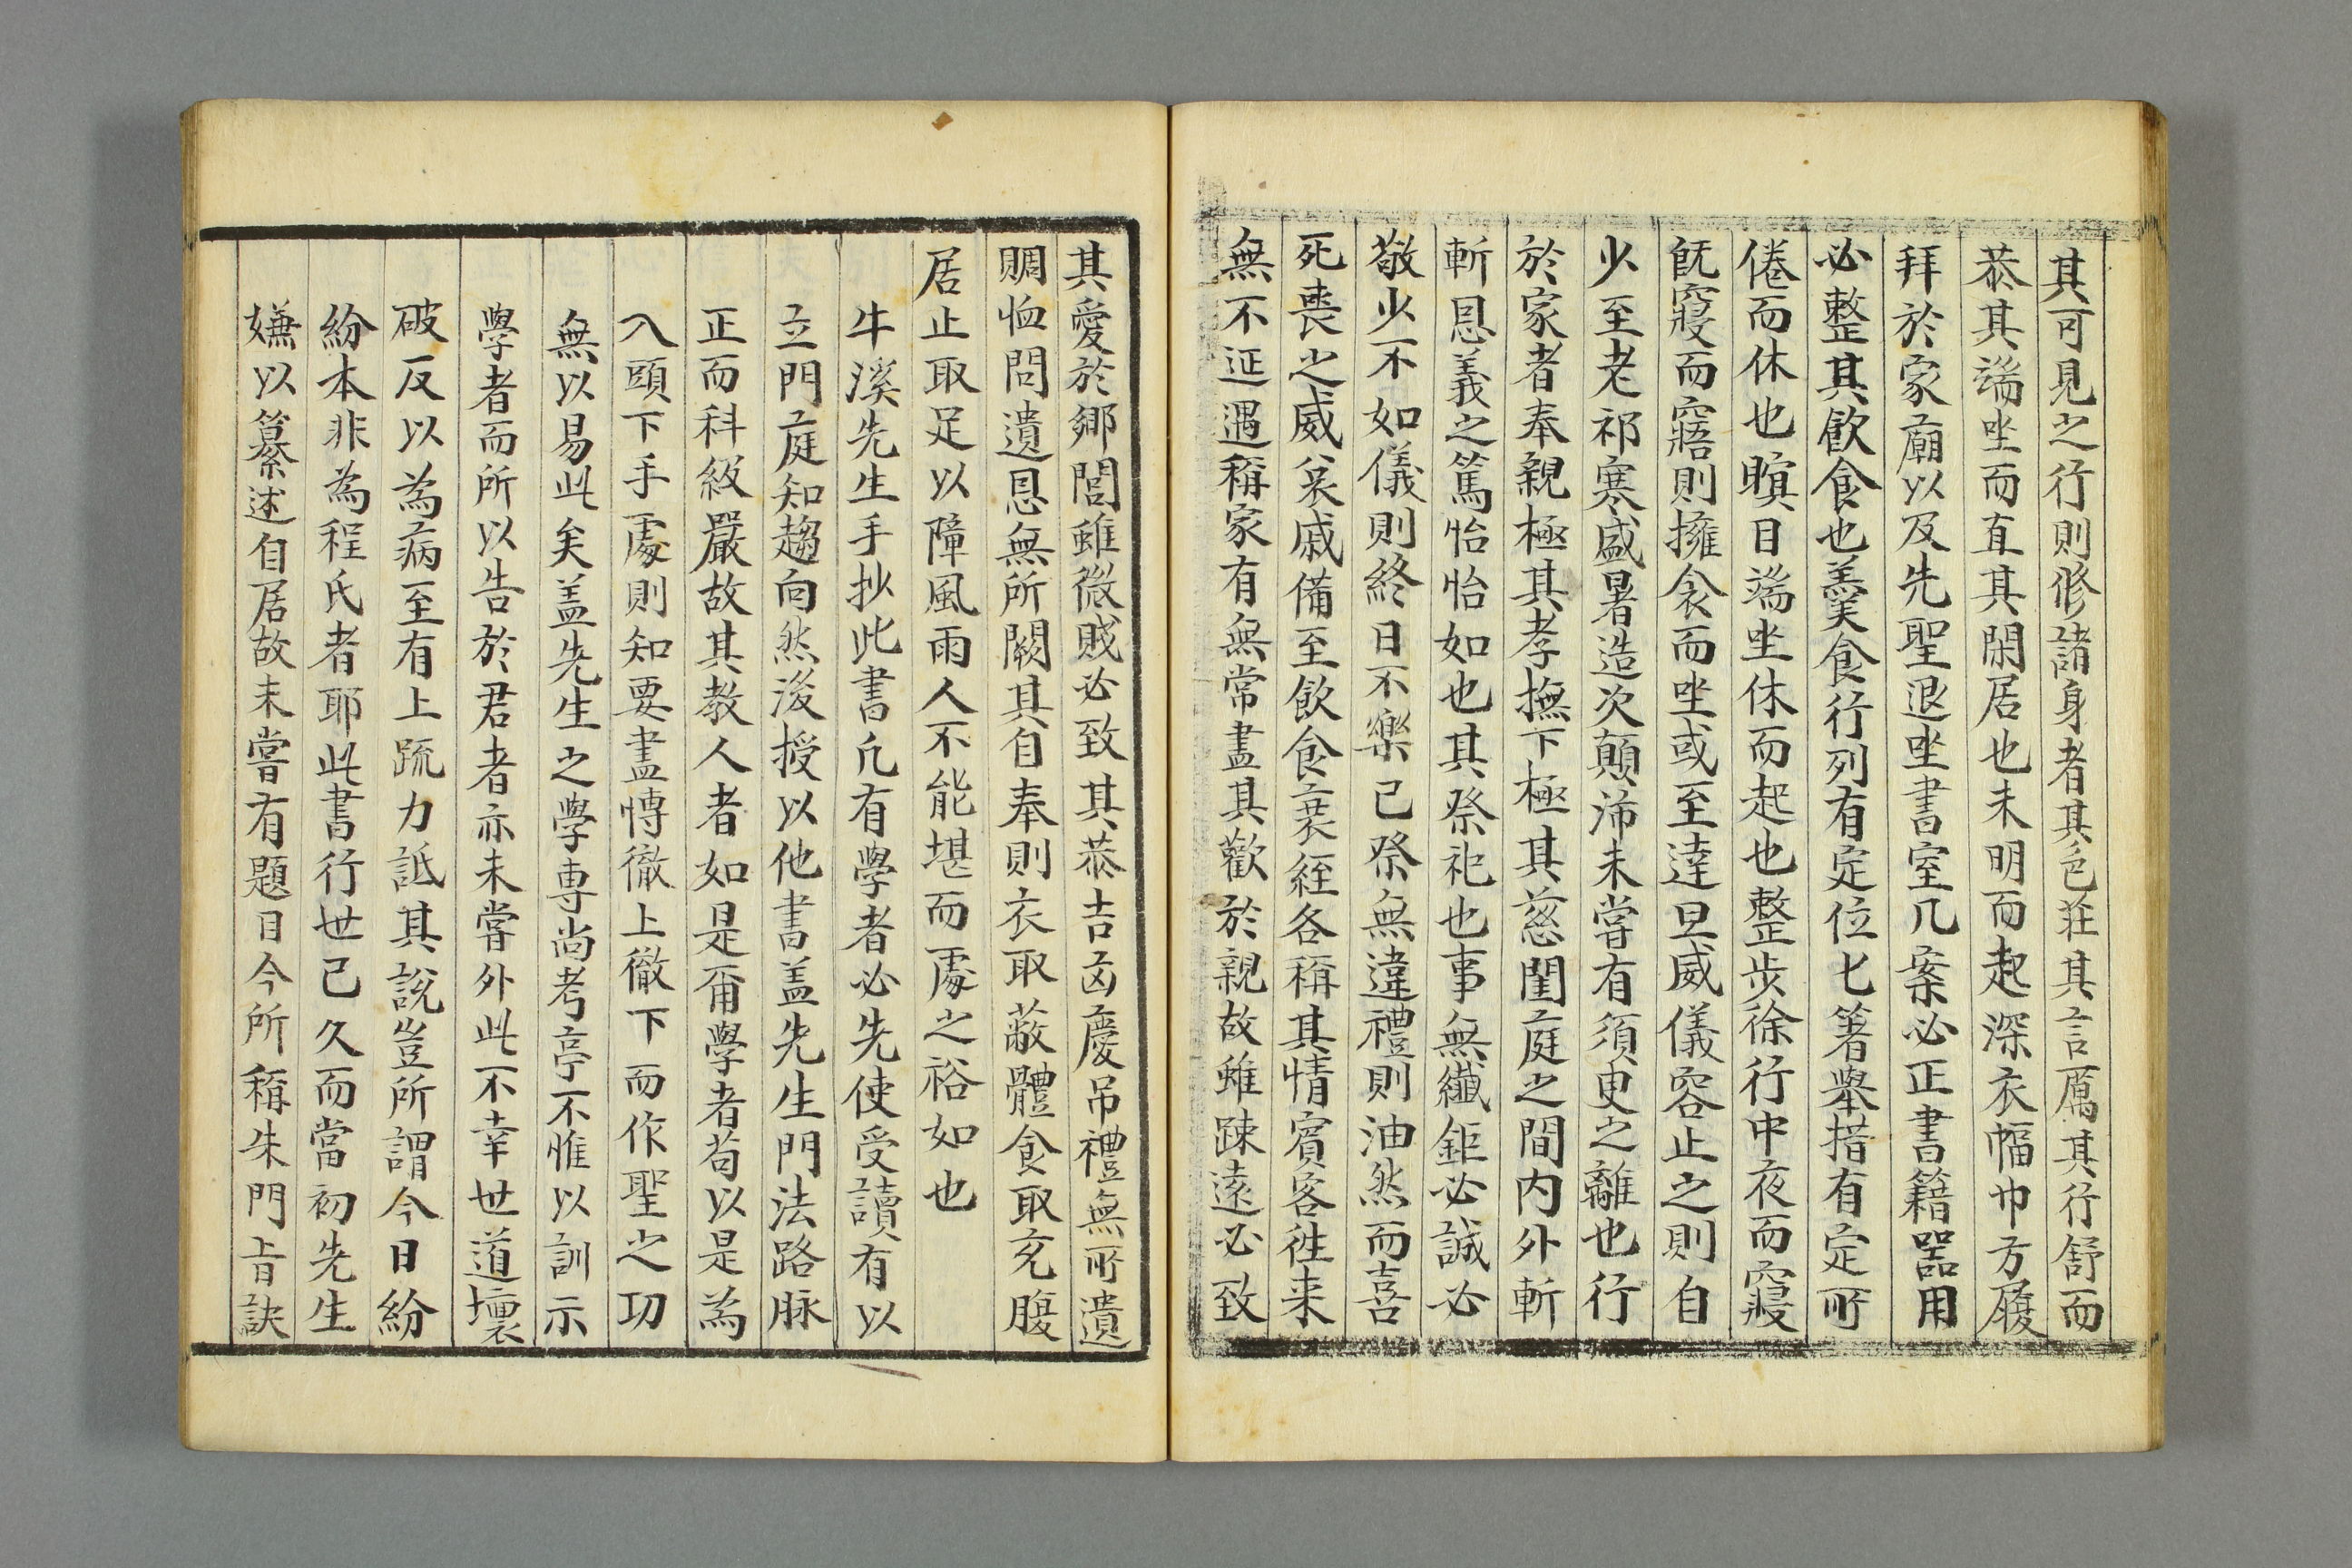 其可見之行則修諸身者其色莊其言厲其行舒而
恭其端坐而直其閑居也未明而起深衣幅巾方履
拜於家廟以及先聖退坐書室几案必正書籍器用
必整其飮食也羹食行列有定位匕箸擧措有定所
倦而休也瞑目端坐休而起也整步徐行中夜而寢
旣寢而寤則擁衾而坐或至達旦威儀容止之則自
少至老祁寒盛暑造次顚沛未嘗有須臾之離也行
於家者奉親極其孝撫下極其慈閨庭之間內外斬
斬恩義之篤怡怡如也其祭祀也事無纖鉅必誠必
敬少不如儀則終日不樂已祭無違禮則油然而喜
死喪之威哀戚備至飮食衰絰各稱其情賓客往来
無不延遇稱家有無常盡其歡於親故雖踈遠必致
其愛於鄉閭雖微賤必致其恭吉凶慶吊禮無所遺
賙恤問遺恩無所闕其自奉則衣取蔽體食取充腹
居止取足以障風雨人不能堪而處之裕如也
牛溪先生手抄此書凡有學者必先使受讀有以
立門庭知趨向然後授以他書盖先生門法路脉
正而科級嚴故其敎人者如是爾學者苟以是為
入頭下手處則知要盡博徹上徹下而作聖之功
無以易此矣盖先生之學專尙考亭不惟以訓示
學者而所以告於君者亦未嘗外此不幸世道壞
破反以為病至有上疏力詆其說豈所謂今日紛
紛本非為程氏者耶此書行世已久而當初先生
嫌以纂述自居故未嘗有題目今所稱朱門旨訣